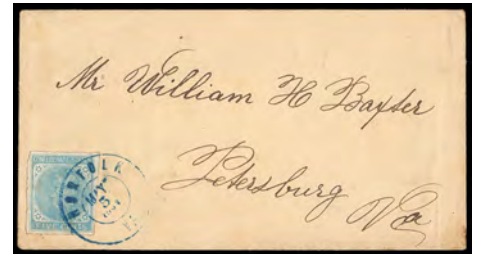 Mr William H Baxter
Petersburg
Va
NORFOLK
MAY
5
FIVE CENTS